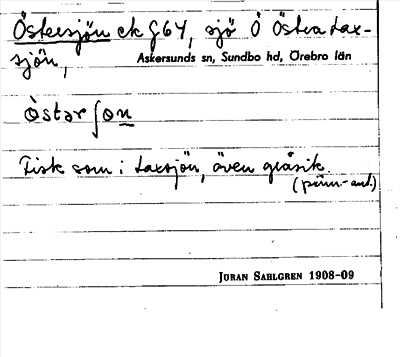 Östersjön ek G64, sjö Ö Östra Lax-
sjön, Askersunds sn, Sundbo hd, Örebro län
östərʃon
Fisk som i Laxsjön, även gråsik.
JÖRAN SAHLGREN 1908-09